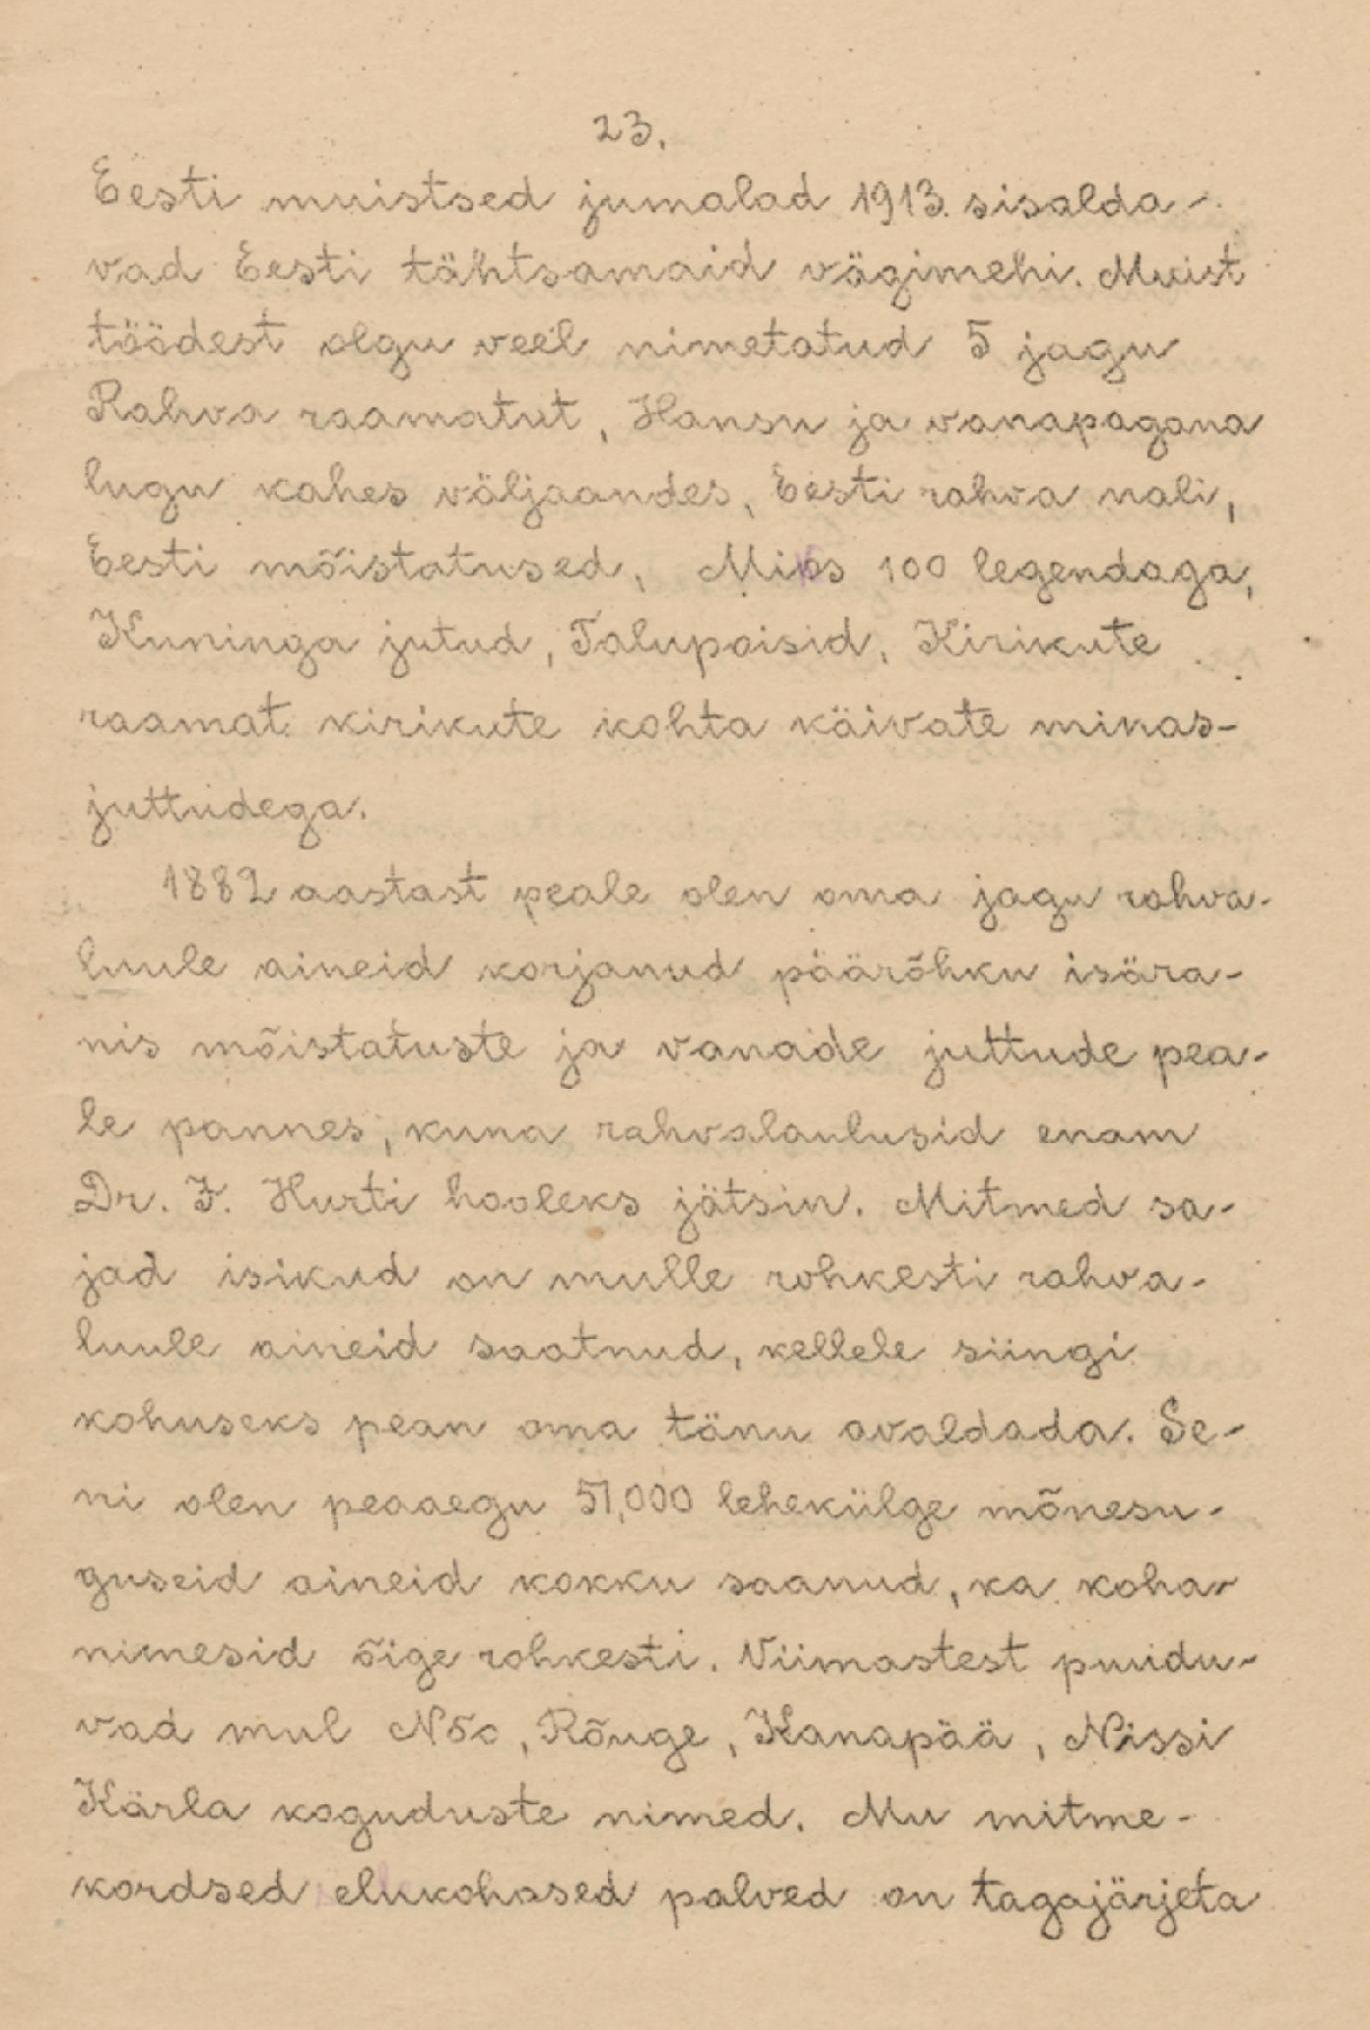 23.
Eesti muistsed jumalad 1913. sisalda-
vad Eesti tähtsamaid vägimehi. Muist
töödest olgu veel nimetatud 5 jagu
Rahva raamatut, Hansu ja vanapagana
lugu kahes väljaandes, Eesti rahva nali,
Eesti mõistatused, Miks 100 legendaga,
Kuninga jutud, Talupoisid, Kirikute
raamat kirikute kohta käivate minas-
juttudega.
1882 aastast peale olen oma jagu rahva-
luule aineid korjanud päärõhku isära-
nis mõistatuste ja vanade juttude pea-
le pannes, kuna rahvalaulusid enam
Dr. J. Hurti hooleks jätsin. Mitmed sa-
jad isikud on mulle rohkesti rahva-
luule aineid saatnud, kellele siingi
kohuseks pean oma tänu avaldada. Se-
ni olen peaaegu 51,000 lehekülge mõnesu-
guseid aineid kokku saanud, ka koha-
nimesid õige rohkesti. Viimastest puudu-
vad mul Nõo, Rõuge, Kanapää, Nissi
Kärla koguduste nimed. Mu mitme-
kordsed elukohased palved on tagajärjeta